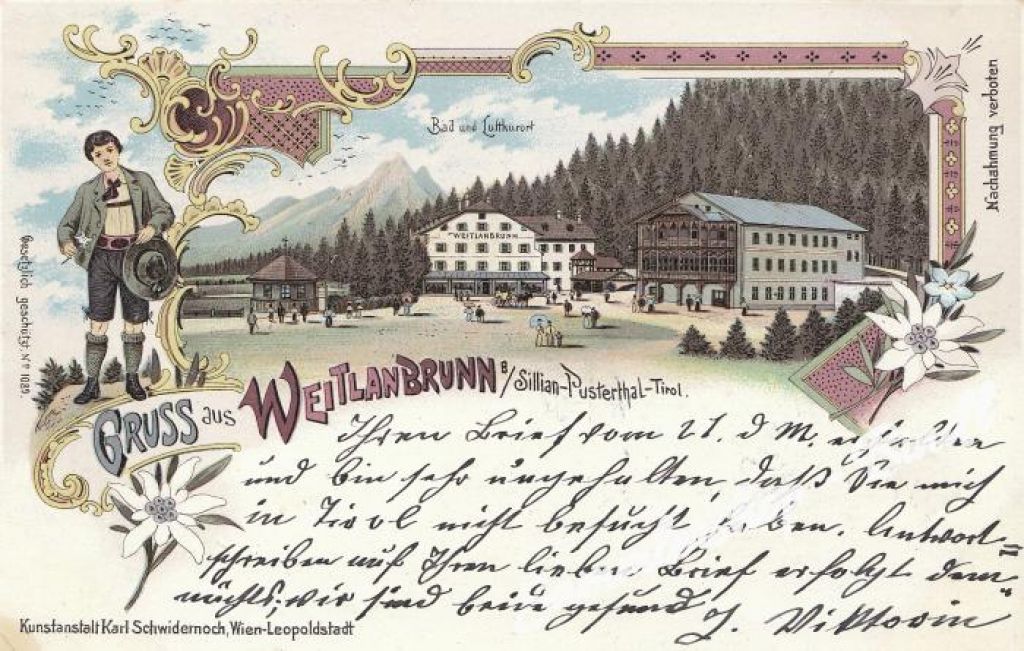 Bad und Luftkurort
WEITLANBRUNN
Nachahmung verboten
Gesetzlich geschützt. Nº 1089.
GRUSS aus WEITLANBRUNN B/Sillian-Pusterthal-Tirol.
Ihren Brief vom 21. d M. erhalten
und bin sehr ungehalten, daß Sie mich
in Tirol nicht besucht haben. Antwort=
schreiben auf Ihren lieben Brief erfolgt dem=
nächst; wir sind beide gesund J. Viktorin
Kunstanstalt Karl Schwidernoch, Wien-Leopoldstadt